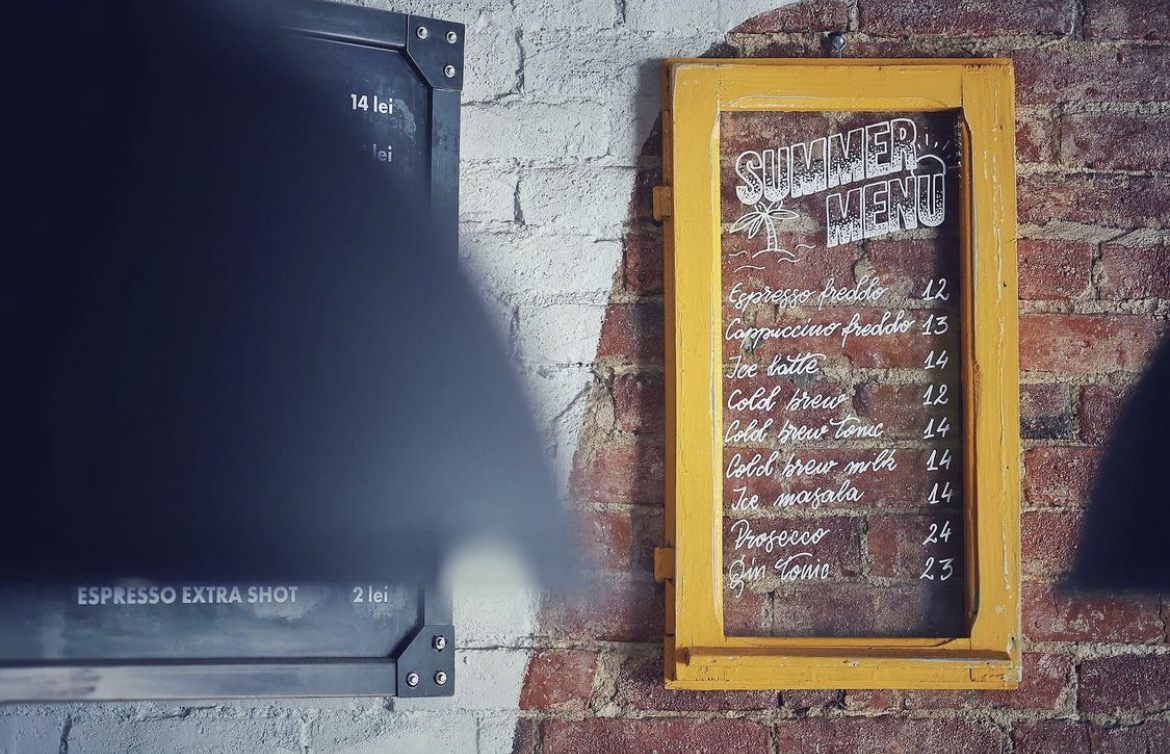 14 lei
lei
ESPRESSO EXTRA SHOT 2 lei
SUMMER
MENU
Espresso freddo 12
Cappuccino freddo 13
Ice latte 14
Cold brew 12
Cold brew tonic 14
Cold brew milk 14
Ice masala 14
Prosecco 24
Gin tonic 23